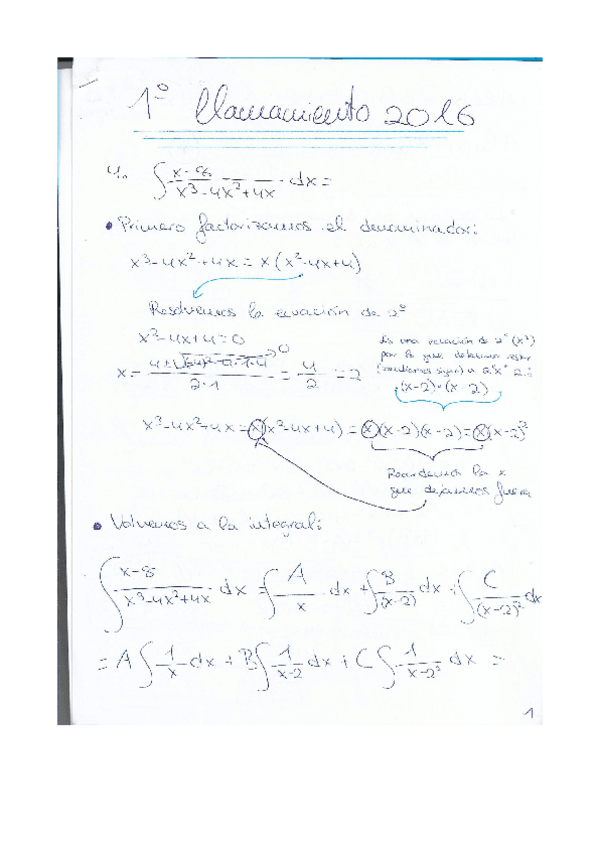 1º Llamamiento 2016
4. ∫ x-8 / x³-4x²+4x dx =
• Primero factorizamos el denominador:
x³-4x²+4x = x(x²-4x+4)
Resolvemos la ecuación de 2º
x²-4x+4=0
x = / 2·1 = 4/2 = 2
0
Es una ecuación de 2º (x²)
por lo que debemos restar
a "x" 2:
(x-2)·(x-2)
x³-4x²+4x = x(x²-4x+4) = x(x-2)(x-2) = x(x-2)²
la x
que dejamos fuera
• Volvemos a la integral:
∫ x-8 / x³-4x²+4x dx = ∫ A / x dx + ∫ B / (x-2) dx + ∫ C / (x-2)² dx
= A ∫ 1/x dx + B ∫ 1 / x-2 dx + C ∫ 1 / x-2² dx =
1